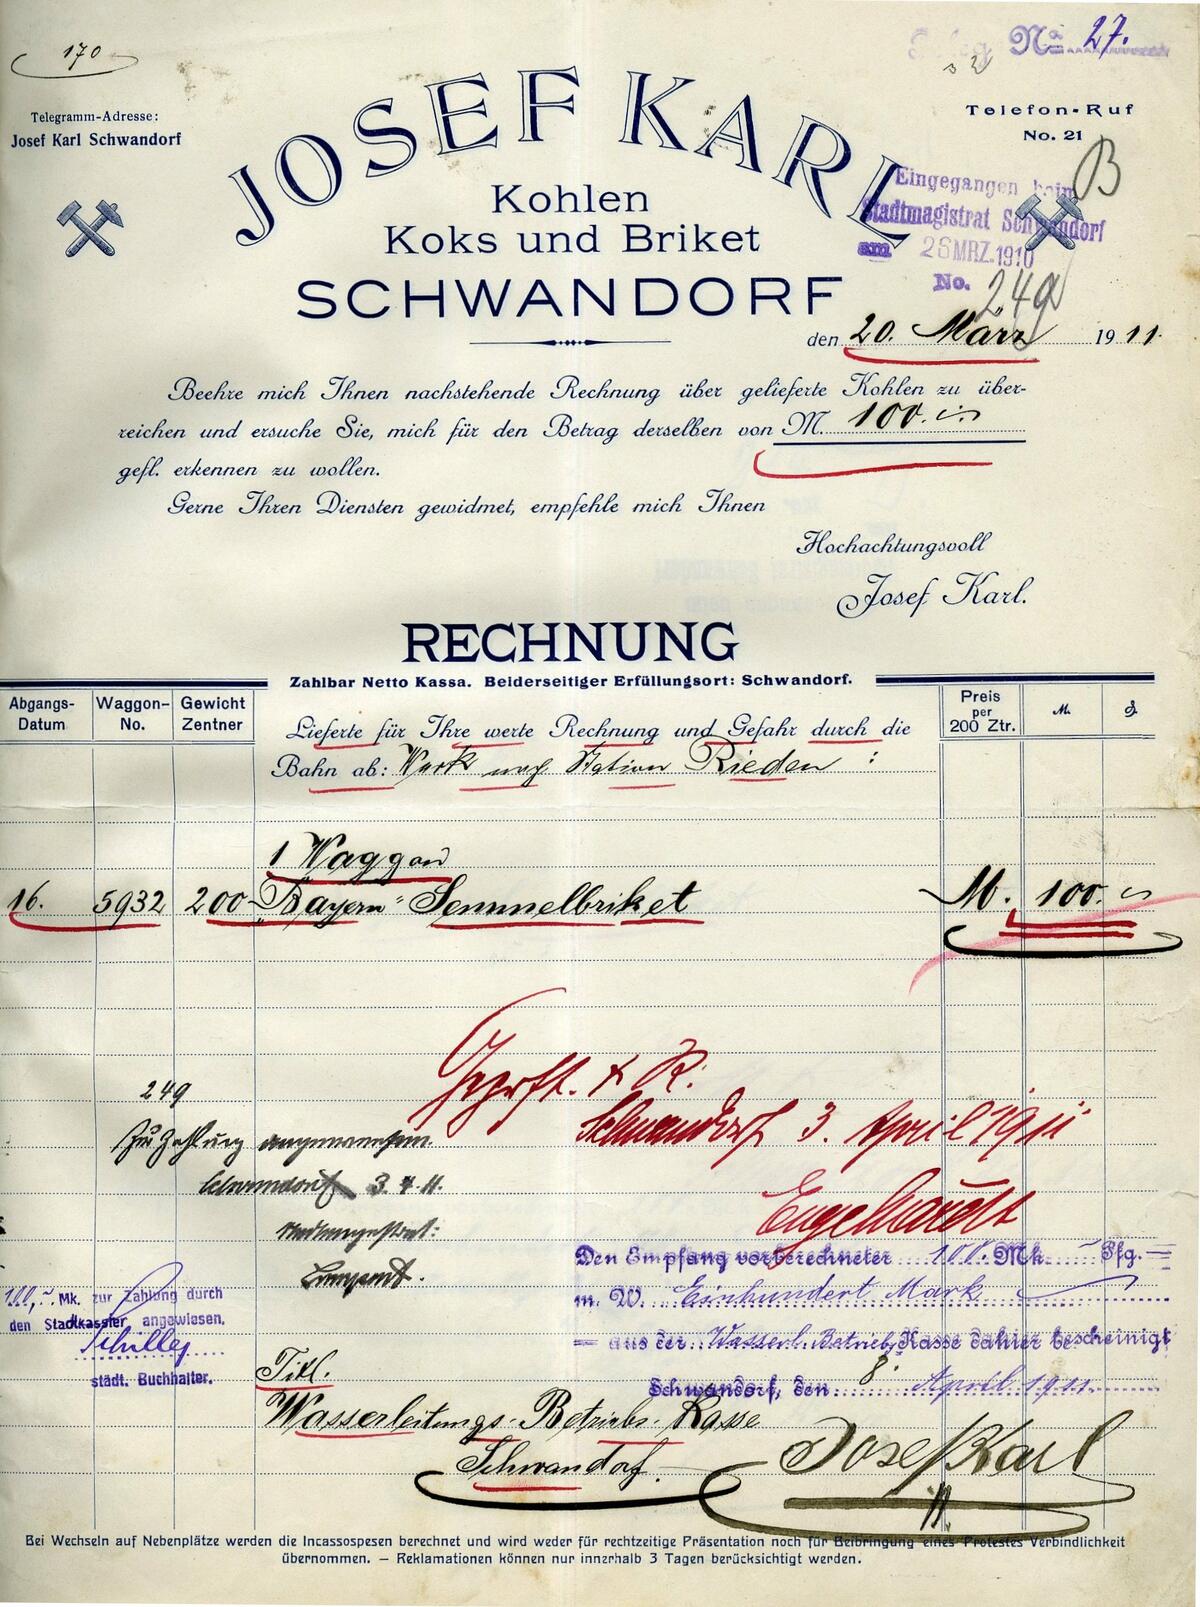 170
No. 27.
Telegramm-Adresse:
Josef Karl Schwandorf
Telefon-Ruf
No. 21
B
JOSEF KARL
Kohlen
Koks und Briket
SCHWANDORF
Eingegangen beim
Stadtmagistrat Schwandorf
am 26 MRZ. 1910
No. 249
den 20. März 1911.
Beehre mich Ihnen nachstehende Rechnung über gelieferte Kohlen zu über-
reichen und ersuche Sie, mich für den Betrag derselben von M. 100.
gefl. erkennen zu wollen.
Gerne Ihren Diensten gewidmet, empfehle mich Ihnen
Hochachtungsvoll
Josef Karl.
RECHNUNG
Zahlbar Netto Kassa. Beiderseitiger Erfüllungsort: Schwandorf.
Abgangs-Datum
Waggon-No.
Gewicht Zentner
Preis per 200 Ztr.
M.
₰.
Lieferte für Ihre werte Rechnung und Gefahr durch die
Bahn ab: Werk nach Station Rieden :
1 Waggon
16. 5932 200 "Bayern" Semmelbriket M. 100.
249
Zur Zahlung angewiesen.
Schwandorf 3. 4. 11.
Schwandorf 3. April 1911
Engelhardt
Den Empfang vorberechneter 100. Mk – Pfg.
m. W. Einhundert Mark
aus der Wasserl. Betriebs Kasse dahier bescheinigt
Schwandorf, den 8. April 1911.
100,– Mk. zur Zahlung durch
den Stadtkassier angewiesen.
städt. Buchhalter.
Titl.
Wasserleitungs-Betriebs-Kasse
Schwandorf.
Josef Karl
Bei Wechseln auf Nebenplätze werden die Incassospesen berechnet und wird weder für rechtzeitige Präsentation noch für Beibringung eines Protestes Verbindlichkeit
übernommen. — Reklamationen können nur innerhalb 3 Tagen berücksichtigt werden.